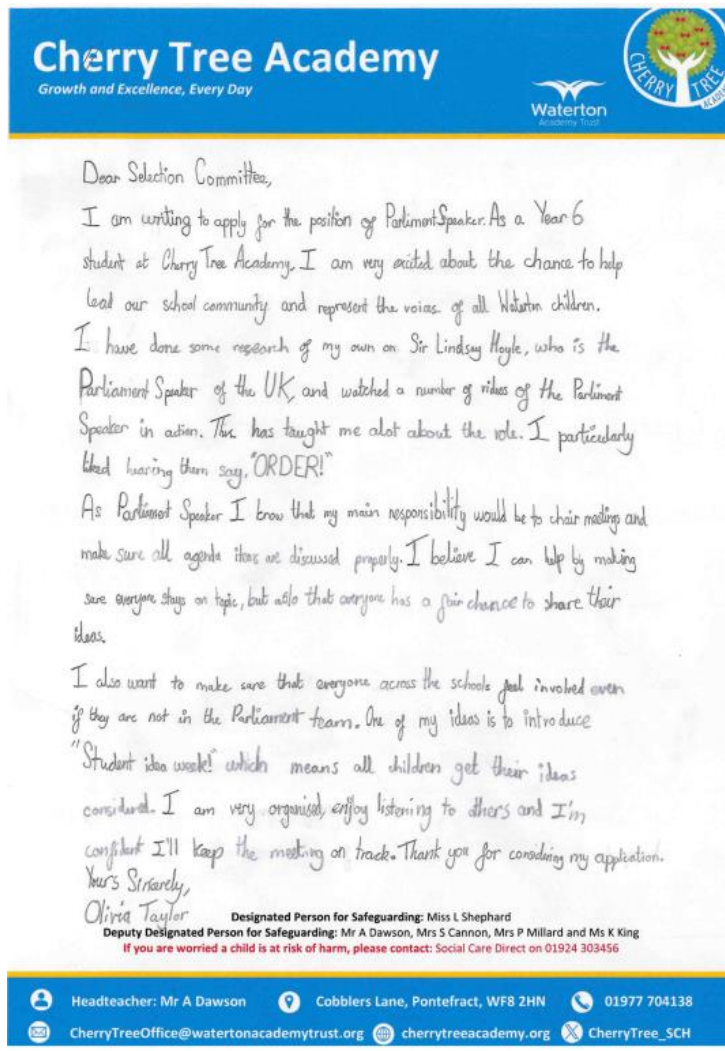 Cherry Tree Academy
Growth and Excellence, Every Day
Waterton
Academy Trust
CHERRY TREE ACADEMY
Dear Selection Committee,
I am writing to apply for the position of Parliment Speaker. As a Year 6
student at Cherry Tree Academy, I am very excited about the chance to help
lead our school community and represent the voices of all Waterton children.
I have done some research of my own on Sir Lindsay Hoyle, who is the
Parliament Speaker of the UK, and watched a number of videos of the Parliment
Speaker in action. This has taught me alot about the role. I particularly
liked hearing them say, "ORDER!"
As Parliament Speaker I know that my main responsibility would be to chair meetings and
make sure all agenda items are discussed properly. I believe I can help by making
sure everyone stays on topic, but aslo that everyone has a fair chance to share their
ideas.
I also want to make sure that everyone across the schools feel involved even
if they are not in the Parliament team. One of my ideas is to introduce
"Student idea week!" which means all children get their ideas
considered. I am very organised, enjoy listening to others and I'm
confident I'll keep the meeting on track. Thank you for considering my application.
Yours Sincerely,
Olivia Taylor
Designated Person for Safeguarding: Miss L Shephard
Deputy Designated Person for Safeguarding: Mr A Dawson, Mrs S Cannon, Mrs P Millard and Ms K King
If you are worried a child is at risk of harm, please contact: Social Care Direct on 01924 303456
Headteacher: Mr A Dawson Cobblers Lane, Pontefract, WF8 2HN 01977 704138
CherryTreeOffice@watertonacademytrust.org cherrytreeacademy.org CherryTree_SCH